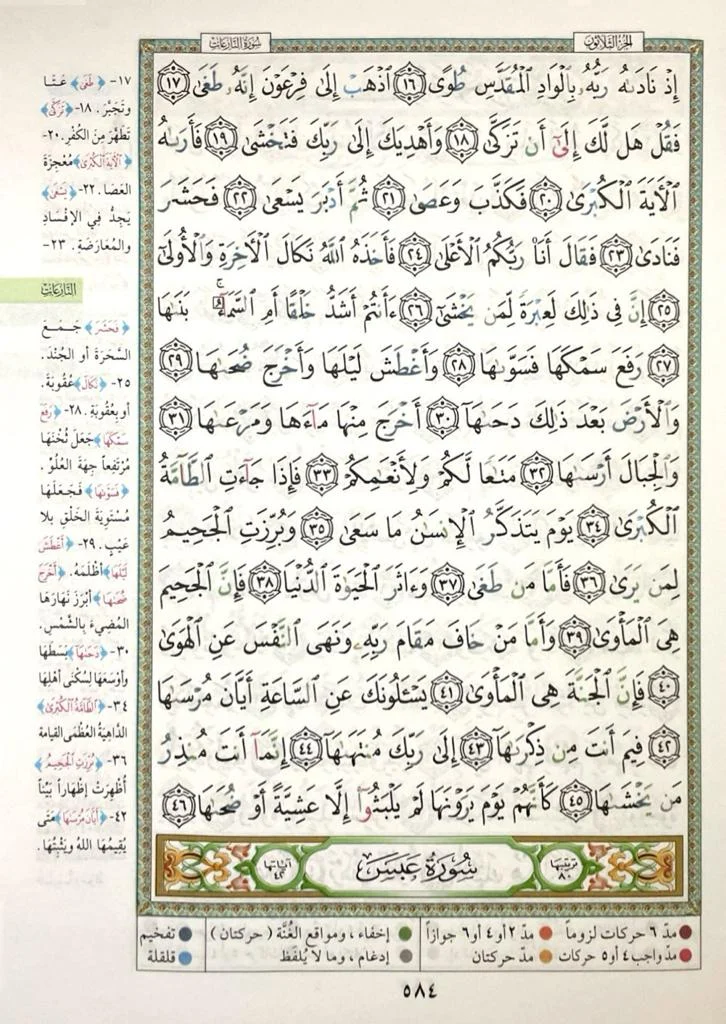 الجزء الثلاثون
سورة النازعات
إِذْ نَادَىٰهُ رَبُّهُۥ بِٱلْوَادِ ٱلْمُقَدَّسِ طُوًى ١٦ ٱذْهَبْ إِلَىٰ فِرْعَوْنَ إِنَّهُۥ طَغَىٰ ١٧
فَقُلْ هَل لَّكَ إِلَىٰٓ أَن تَزَكَّىٰ ١٨ وَأَهْدِيَكَ إِلَىٰ رَبِّكَ فَتَخْشَىٰ ١٩ فَأَرَىٰهُ
ٱلْءَايَةَ ٱلْكُبْرَىٰ ٢٠ فَكَذَّبَ وَعَصَىٰ ٢١ ثُمَّ أَدْبَرَ يَسْعَىٰ ٢٢ فَحَشَرَ
فَنَادَىٰ ٢٣ فَقَالَ أَنَا۠ رَبُّكُمُ ٱلْأَعْلَىٰ ٢٤ فَأَخَذَهُ ٱللَّهُ نَكَالَ ٱلْءَاخِرَةِ وَٱلْأُولَىٰٓ
٢٥ إِنَّ فِى ذَٰلِكَ لَعِبْرَةً لِّمَن يَخْشَىٰٓ ٢٦ ءَأَنتُمْ أَشَدُّ خَلْقًا أَمِ ٱلسَّمَآءُ ۚ بَنَىٰهَا
٢٧ رَفَعَ سَمْكَهَا فَسَوَّىٰهَا ٢٨ وَأَغْطَشَ لَيْلَهَا وَأَخْرَجَ ضُحَىٰهَا ٢٩
وَٱلْأَرْضَ بَعْدَ ذَٰلِكَ دَحَىٰهَآ ٣٠ أَخْرَجَ مِنْهَا مَآءَهَا وَمَرْعَىٰهَا ٣١
وَٱلْجِبَالَ أَرْسَىٰهَا ٣٢ مَتَٰعًا لَّكُمْ وَلِأَنْعَٰمِكُمْ ٣٣ فَإِذَا جَآءَتِ ٱلطَّآمَّةُ
ٱلْكُبْرَىٰ ٣٤ يَوْمَ يَتَذَكَّرُ ٱلْإِنسَٰنُ مَا سَعَىٰ ٣٥ وَبُرِّزَتِ ٱلْجَحِيمُ
لِمَن يَرَىٰ ٣٦ فَأَمَّا مَن طَغَىٰ ٣٧ وَءَاثَرَ ٱلْحَيَوٰةَ ٱلدُّنْيَا ٣٨ فَإِنَّ ٱلْجَحِيمَ
هِىَ ٱلْمَأْوَىٰ ٣٩ وَأَمَّا مَنْ خَافَ مَقَامَ رَبِّهِۦ وَنَهَى ٱلنَّفْسَ عَنِ ٱلْهَوَىٰ
٤٠ فَإِنَّ ٱلْجَنَّةَ هِىَ ٱلْمَأْوَىٰ ٤١ يَسْـَٔلُونَكَ عَنِ ٱلسَّاعَةِ أَيَّانَ مُرْسَىٰهَا
٤٢ فِيمَ أَنتَ مِن ذِكْرَىٰهَآ ٤٣ إِلَىٰ رَبِّكَ مُنتَهَىٰهَآ ٤٤ إِنَّمَآ أَنتَ مُنذِرُ
مَن يَخْشَىٰهَا ٤٥ كَأَنَّهُمْ يَوْمَ يَرَوْنَهَا لَمْ يَلْبَثُوٓا۟ إِلَّا عَشِيَّةً أَوْ ضُحَىٰهَا ٤٦
ترتيبها ٨٠
سُورَةُ عَبَسَ
آياتها ٤٢
١٧- ﴿طَغَىٰ﴾ عَتَا
وتَجَبَّرَ. ١٨- ﴿تَزَكَّىٰ﴾
تَطَهَّرَ مِنَ الكُفْرِ. ٢٠-
﴿الآيَةَ الكُبْرَىٰ﴾ مُعْجِزَةَ
العَصَا. ٢٢- ﴿يَسْعَىٰ﴾
يَجِدُّ فِي الإِفْسَادِ
والمُعَارَضَةِ. ٢٣-
النازعات
﴿فَحَشَرَ﴾ جَمَعَ
السَّحَرَةَ أو الجُنْدَ.
٢٥- ﴿نَكَالَ﴾ عُقُوبَةَ.
أو بِعُقُوبَةِ. ٢٨- ﴿رَفَعَ
سَمْكَهَا﴾ جَعَلَ ثُخْنَهَا
مُرْتَفِعاً جِهَةَ العُلُوِّ.
﴿فَسَوَّىٰهَا﴾ فَجَعَلَهَا
مُسْتَوِيَةَ الخَلْقِ بلا
عَيْبٍ. ٢٩- ﴿أَغْطَشَ
لَيْلَهَا﴾ أَظْلَمَهُ. ﴿أَخْرَجَ
ضُحَىٰهَا﴾ أَبْرَزَ نَهَارَهَا
المُضِيءَ بالشَّمْسِ.
٣٠- ﴿دَحَىٰهَا﴾ بَسَطَهَا
وأوْسَعَهَا لِسُكْنَى أهْلِهَا
٣٤- ﴿الطَّامَّةُ الكُبْرَىٰ﴾
الدَّاهِيَةُ العُظْمَى القيامة
٣٦- ﴿بُرِّزَتِ الجَحِيمُ﴾
أُظْهِرَتْ إظْهَاراً بَيِّناً
٤٢- ﴿أَيَّانَ مُرْسَىٰهَا﴾ مَتَى
يُقِيمُهَا اللهُ ويُثْبِتُهَا.
مدّ ٦ حركات لزوماً مدّ ٢ أو ٤ أو ٦ جوازاً إخفاء، ومواقع الغُنَّة (حركتان) تفخيم
مدّ واجب ٤ أو ٥ حركات مدّ حركتان إدغام، وما لا يُلفَظ قلقلة
٥٨٤